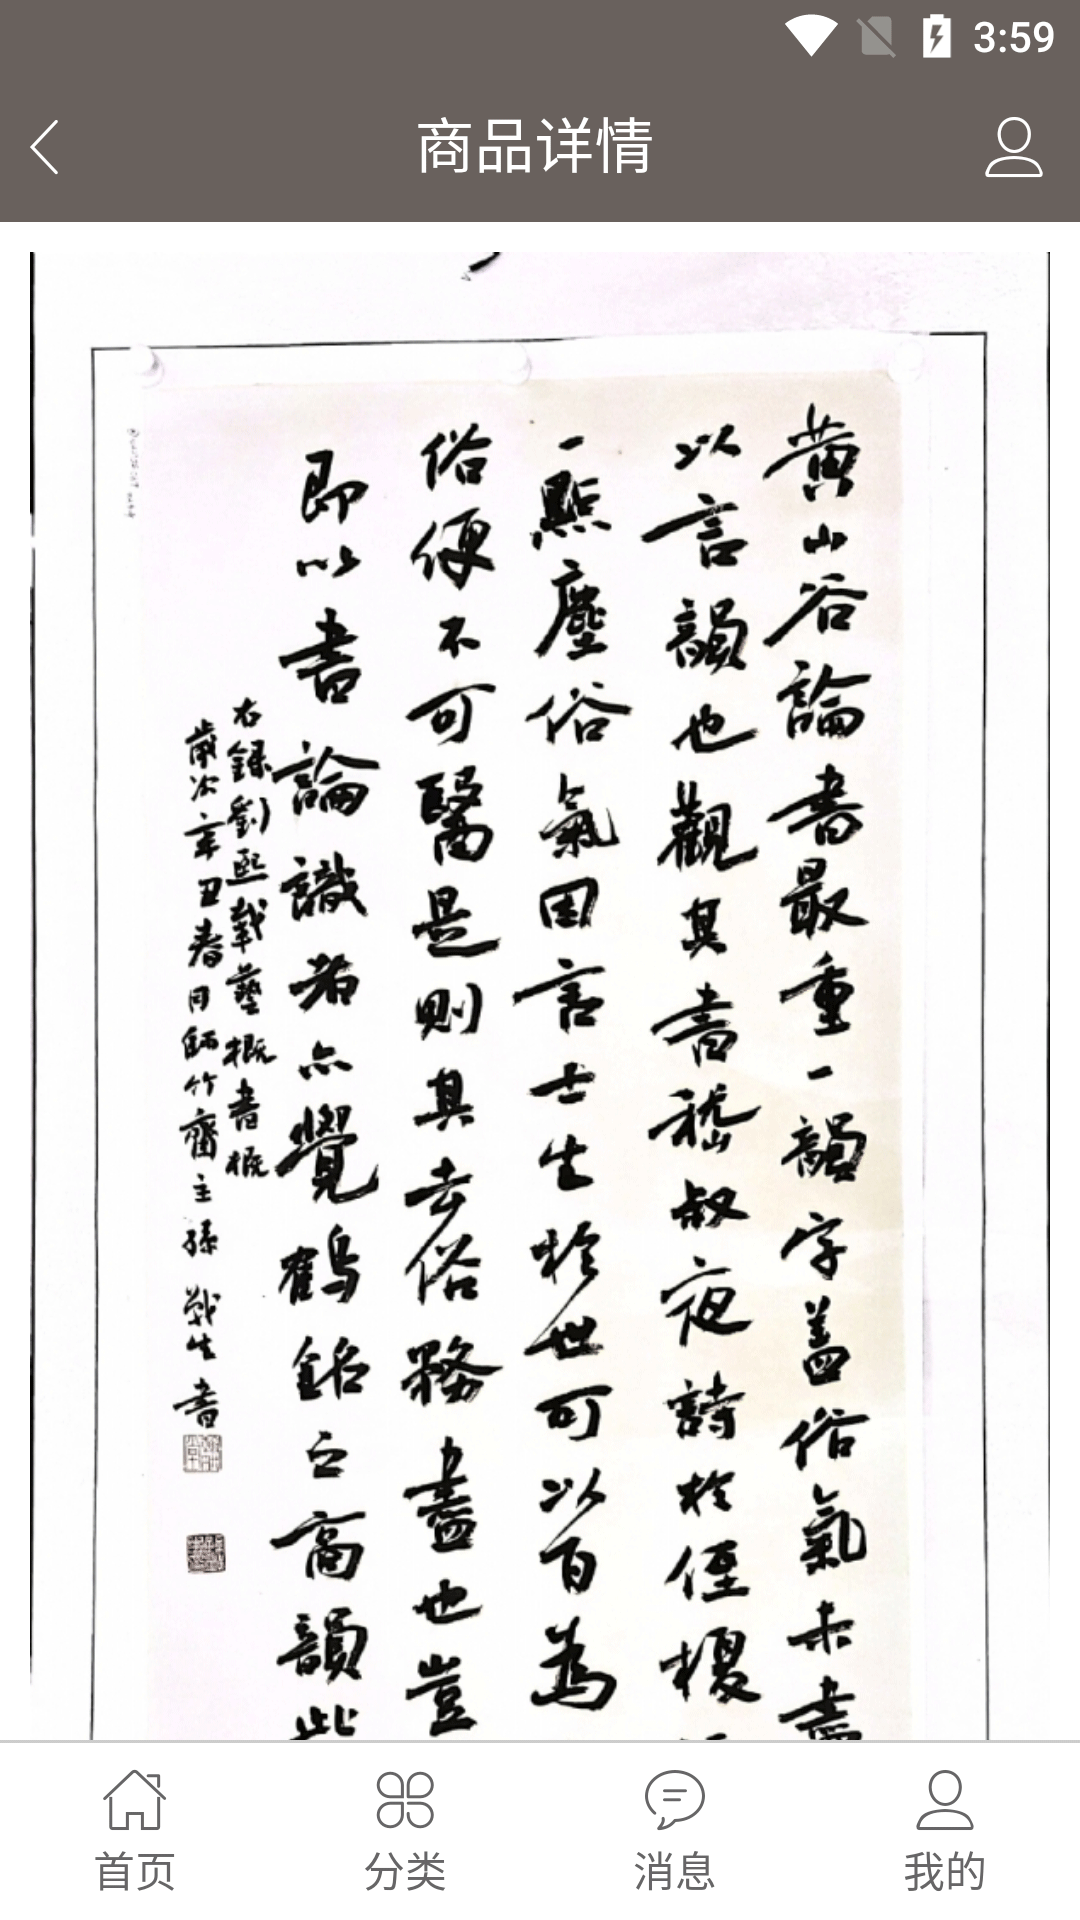 3:59
商品详情
黄山谷論書最重一韻字蓋俗氣未盡
以言韻也觀其書嵇叔夜詩於侄榎
一點塵俗氣因言士生於世可以百為
俗便不可醫是則其去俗務盡也豈
即以書論識者亦覺鶴銘之高韻此
右錄劉熙載藝概書概
歲次辛丑春月師竹齋主孫戰生書
首页
分类
消息
我的